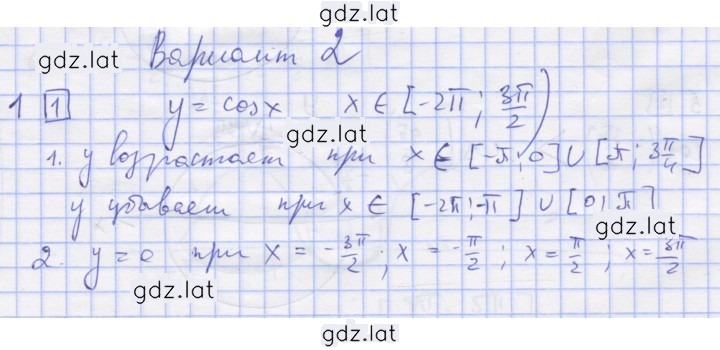 gdz.lat
gdz.lat
Вариант 2
gdz.lat
1 1 y = cos x x ∈ [-2π; 3π/2)
gdz.lat
1. y возрастает при x ∈ [-π; 0] ∪ [π; 3π/4]
y убывает при x ∈ [-2π; -π] ∪ [0; π]
gdz.lat
2. y = 0 при x = -3π/2; x = -π/2; x = π/2; x = 3π/2
gdz.lat
gdz.lat